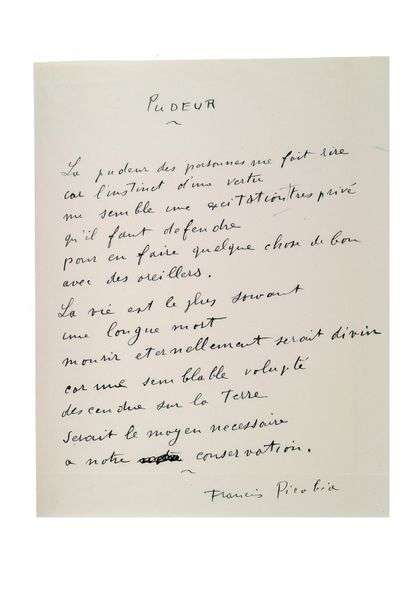 PUDEUR
La pudeur des personnes me fait rire
car l'instinct d'une vertu
me semble une excitation tres privé
qu'il faut defendre
pour en faire quelque chose de bon
avec des oreillers.
La vie est le plus souvant
une longue mort
mourir eternellement serait divin
car une semblable volupté
descendue sur la Terre
serait le moyen necessaire
a notre conservation.
Francis Picabia